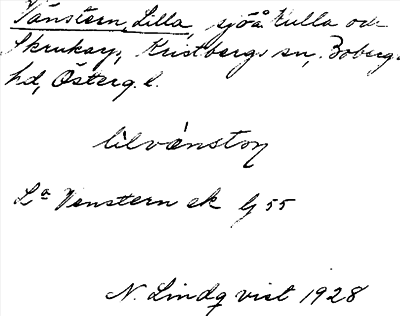 Vänstern, Lilla, sjö å Kulla och
Skruksby, Kristbergs sn, Bobergs
hd, Österg. l.
lilvänston
La Venstern ek bl 55
N. Lindqvist 1928